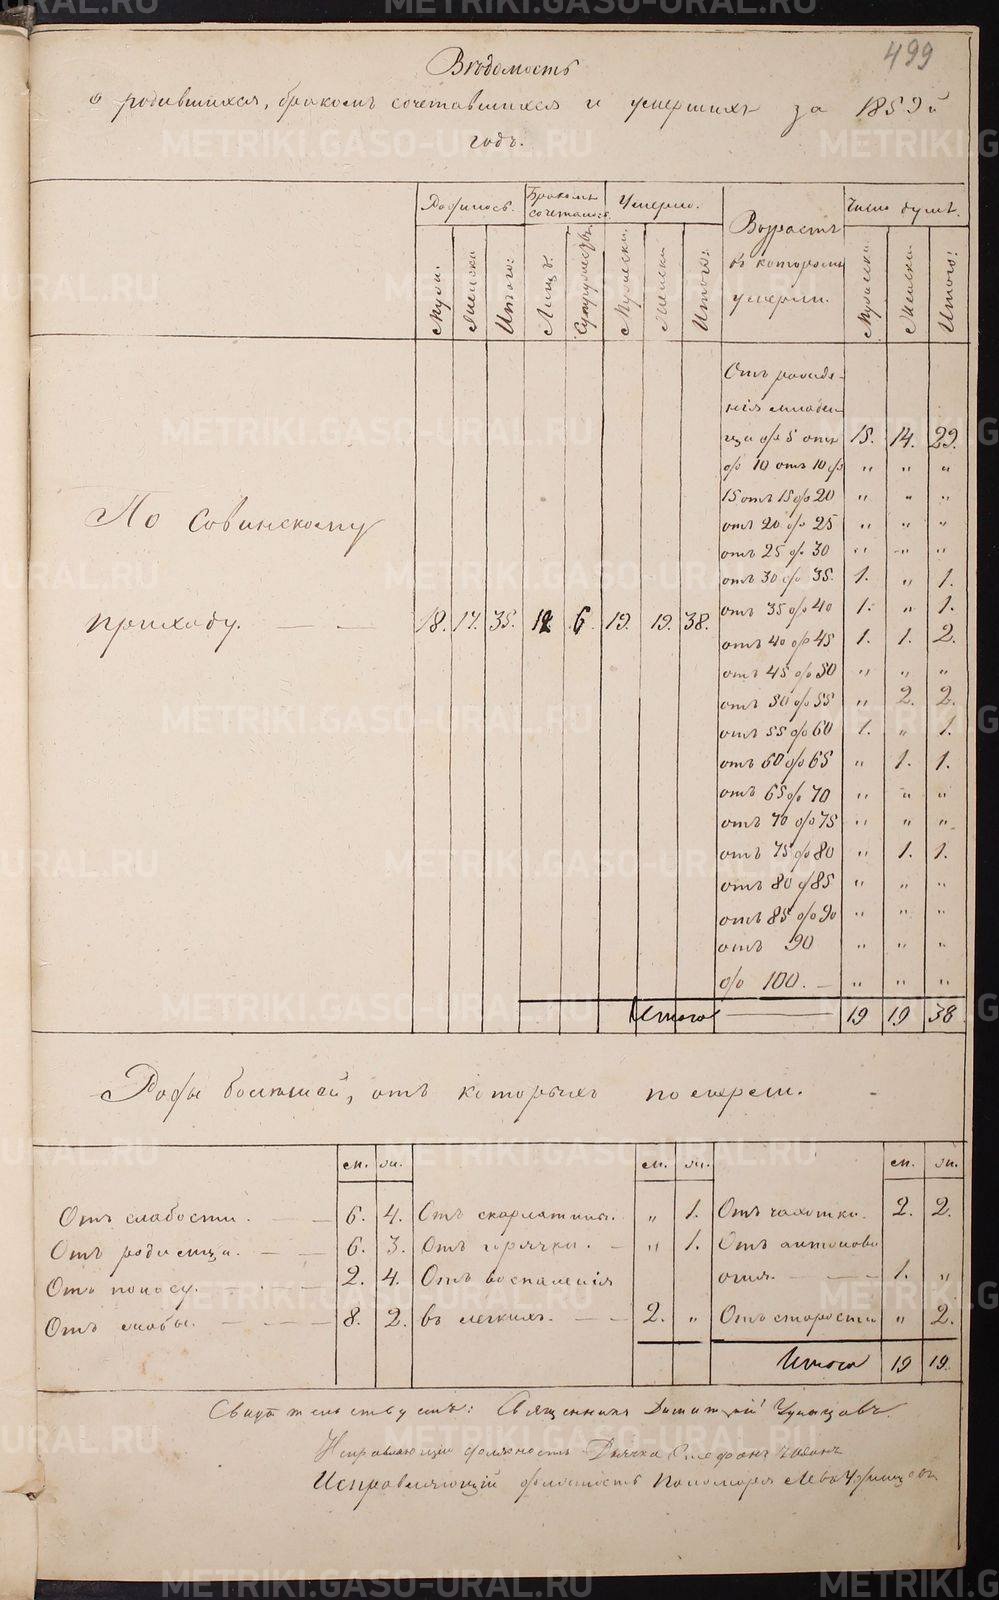 499
Вѣдомость
о родившихся, бракомъ сочетавшихся и умершихъ за 1859й
годъ.
Родилось. Бракомъ сочеталось. Умерло. Возрастъ въ которомъ умерли. Число душъ.
Муж. Женска Итого: Лицъ. Супружествъ. Мужеска. Женска Итого: Мужеска. Женска. Итого:
Отъ рожде-
нія младен-
ца до 5 отъ 15. 14. 29.
до 10 отъ 10 до „ „ „
15 отъ 15 до 20 „ „ „
отъ 20 до 25 „ „ „
отъ 25 до 30 „ „ „
отъ 30 до 35. 1. „ 1.
отъ 35 до 40 1. „ 1.
отъ 40 до 45 1. 1. 2.
отъ 45 до 50 „ „ „
отъ 50 до 55 „ 2. 2.
отъ 55 до 60 1. „ 1.
отъ 60 до 65 „ 1. 1.
отъ 65 до 70 „ „ „
отъ 70 до 75 „ „ „
отъ 75 до 80 „ 1. 1.
отъ 80 до 85 „ „ „
отъ 85 до 90 „ „ „
отъ 90 „ „ „
до 100. „ „ „
По Совинскому
приходу. 18. 17. 35. 12 6. 19. 19. 38.
Итого 19 19 38
Роды болѣзней, отъ которыхъ померли.
м. ж. м. ж. м. ж.
Отъ слабости. 6. 4. Отъ скарлатины. „ 1. Отъ чахотки. 2. 2.
Отъ родимца. 6. 3. Отъ горячки. „ 1. Отъ антонова
Отъ поносу. 2. 4. Отъ воспаленія огня. 1. „
8. 2. въ легкихъ. 2. „ Отъ старости „ 2.
Итого 19 19.
Свидѣтельствуетъ: Священникъ
Исправляющій должность Дьячка
Исправляющій должность Пономаря
METRIKI.GASO-URAL.RU